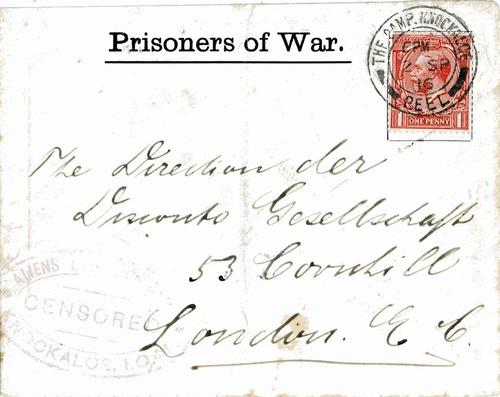 Prisoners of War.
THE CAMP. KNOCKALOE
6 PM
SP
16
PEEL
ONE PENNY
The Direction der
Disconto Gesellschaft
53 Cornhill
London. E. C.
ALIENS
CENSORED
KNOCKALOE, I.O.M.